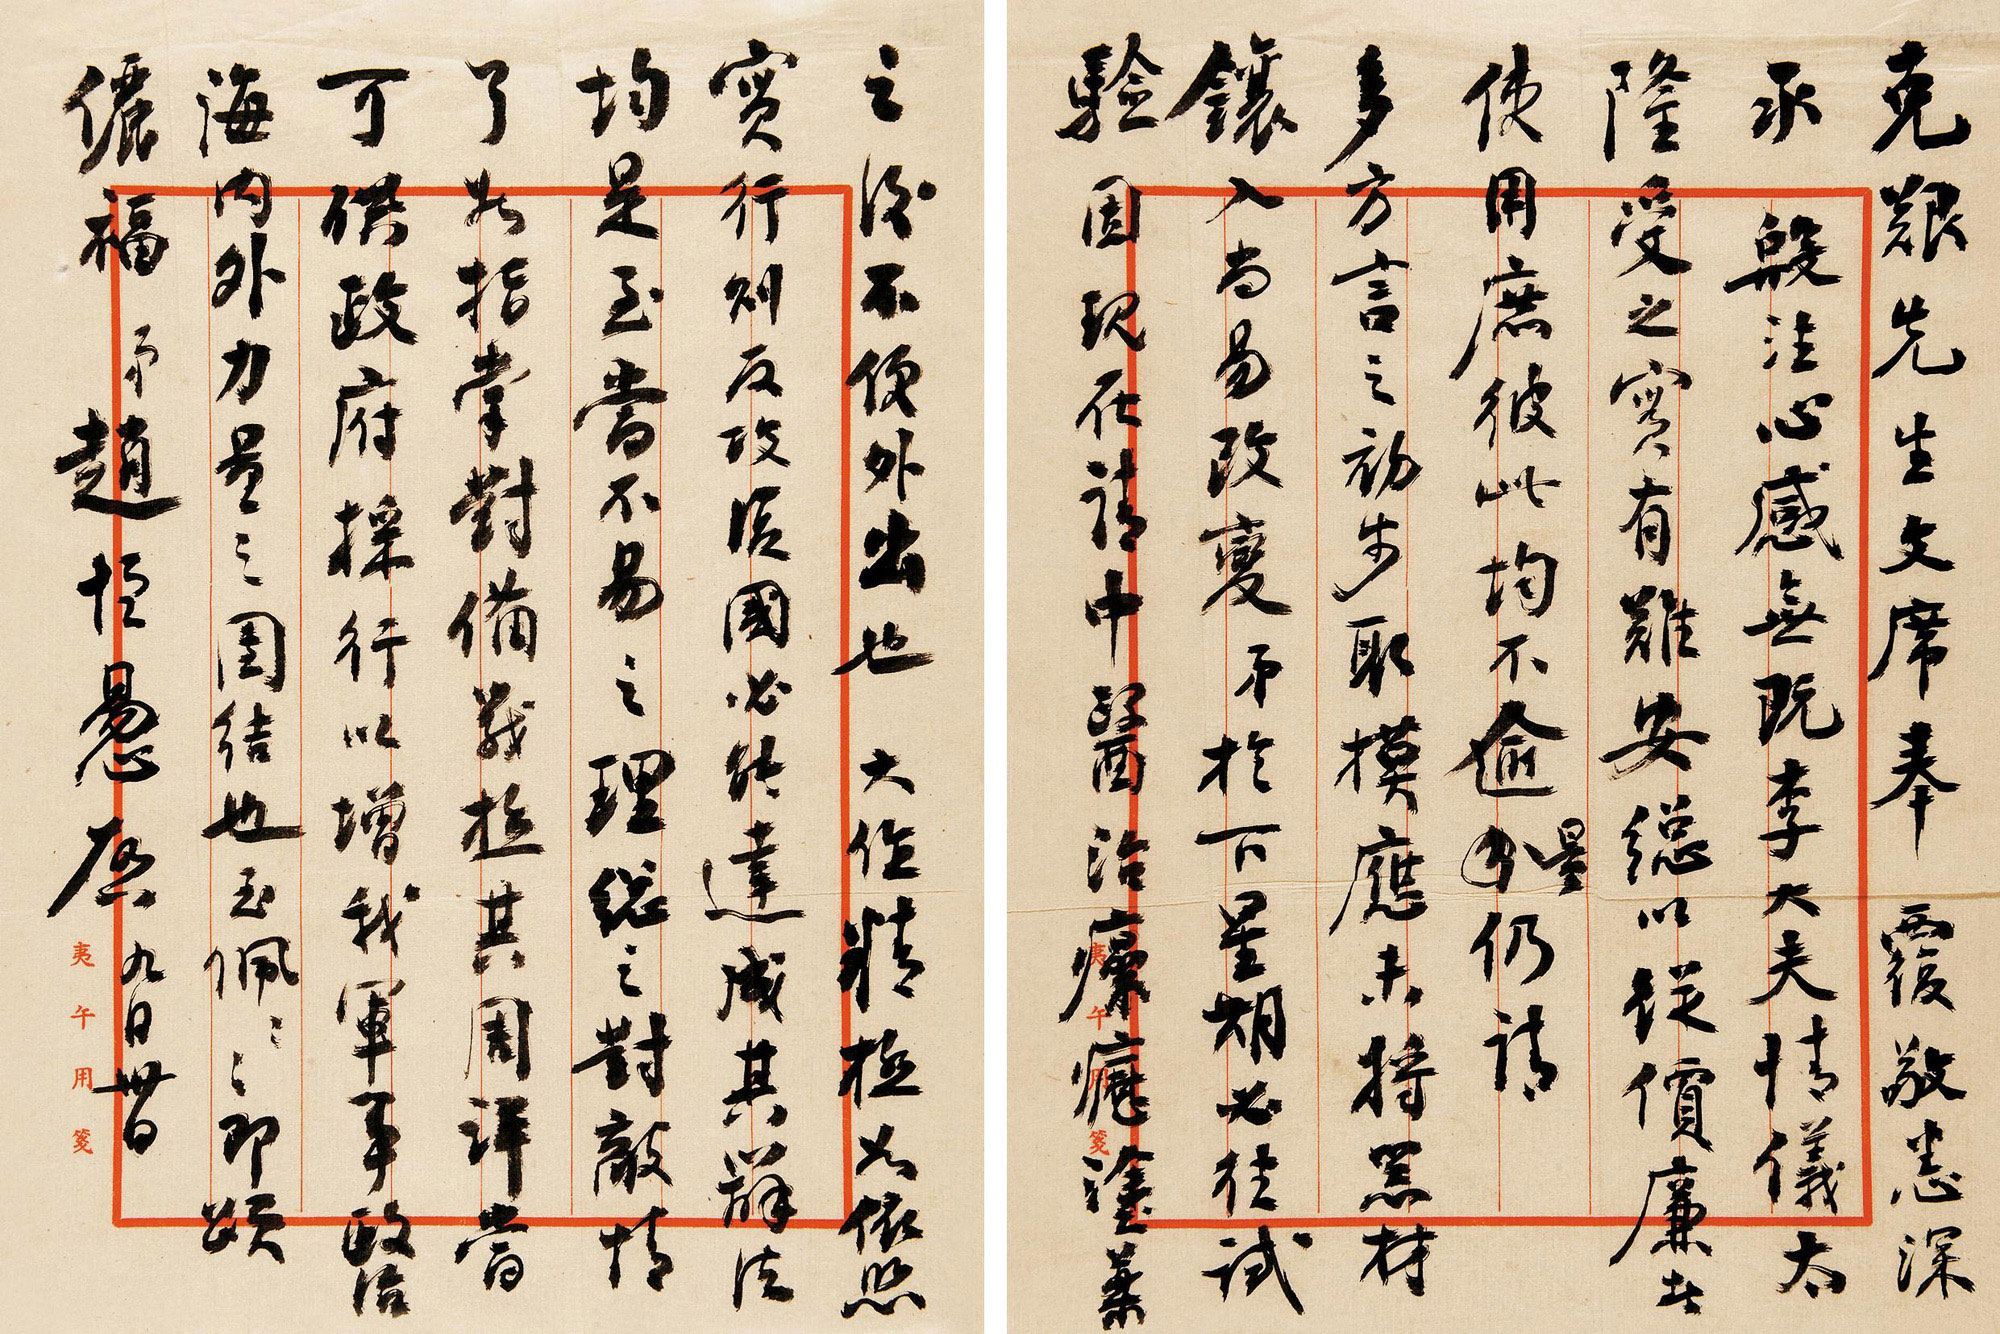 克艱先生文席奉 覆敬悉深
承 殷注心感無既李大夫情儀太
隆受之實有難安總以從價廉者
使用庶彼此均不逾量仍請
多方言之初步取模應未將黑材
鑲入尚易改變弟於下星期必往試
驗因現在請中醫治癢癮塗藥
之後不便外出也 大作精極如依照
實行則反攻復國必能達成其辦法
均是至當不易之理總之對敵情
了如指掌對備戰極其周詳當
可供政府採行以增我軍事政治
海內外力量之團結也至佩之之即頌
儷福 弟趙恒惖啟 九月卅日
夷午用箋
夷午用箋